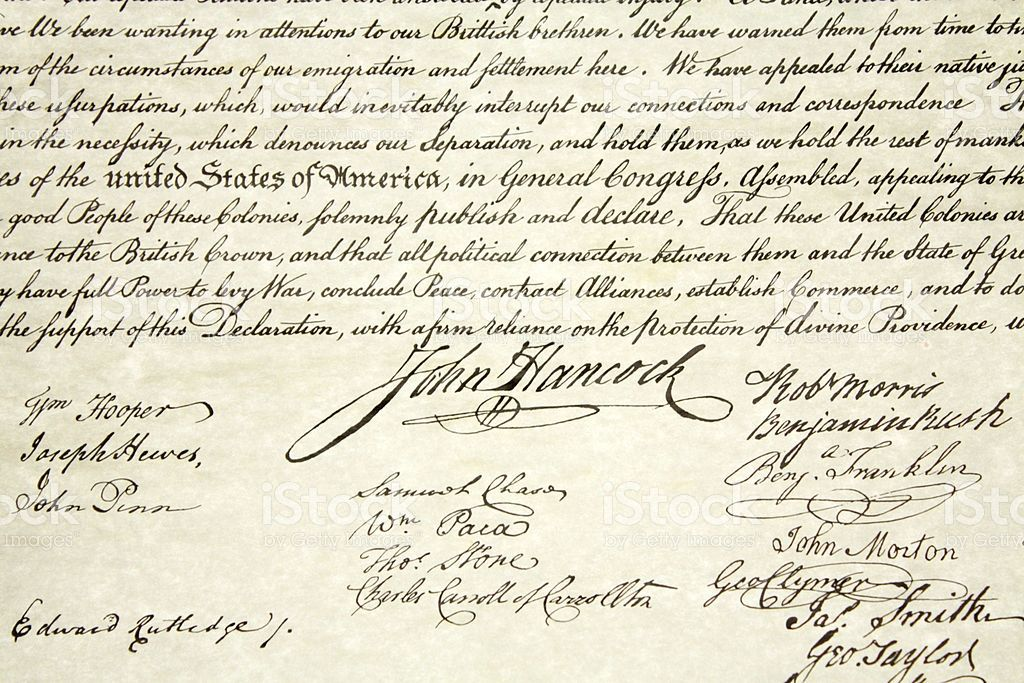 We been wanting in attentions to our Brittish brethren. We have warned them from time to
of the circumstances of our emigration and settlement here. We have appealed to their native
usurpations, which, would inevitably interrupt our connections and correspondence
in the necessity, which denounces our Separation, and hold them, as we hold the rest of
of the united States of America, in General Congress, Assembled, appealing to
good People of these Colonies, solemnly publish and declare, That these United Colonies
to the British Crown, and that all political connection between them and the State of
have full Power to levy War, conclude Peace, contract Alliances, establish Commerce, and to do
the support of this Declaration, with a firm reliance on the protection of divine Providence,
John Hancock
Wm Hooper
Joseph Hewes,
John Penn
Edward Rutledge /.
Samuel Chase
Wm Paca
Thos Stone
Charles Carroll of Carrollton
Robt Morris
Benjamin Rush
Benja Franklin
John Morton
Geo Clymer
Jas. Smith
Geo. Taylor
iStock
by Getty Images